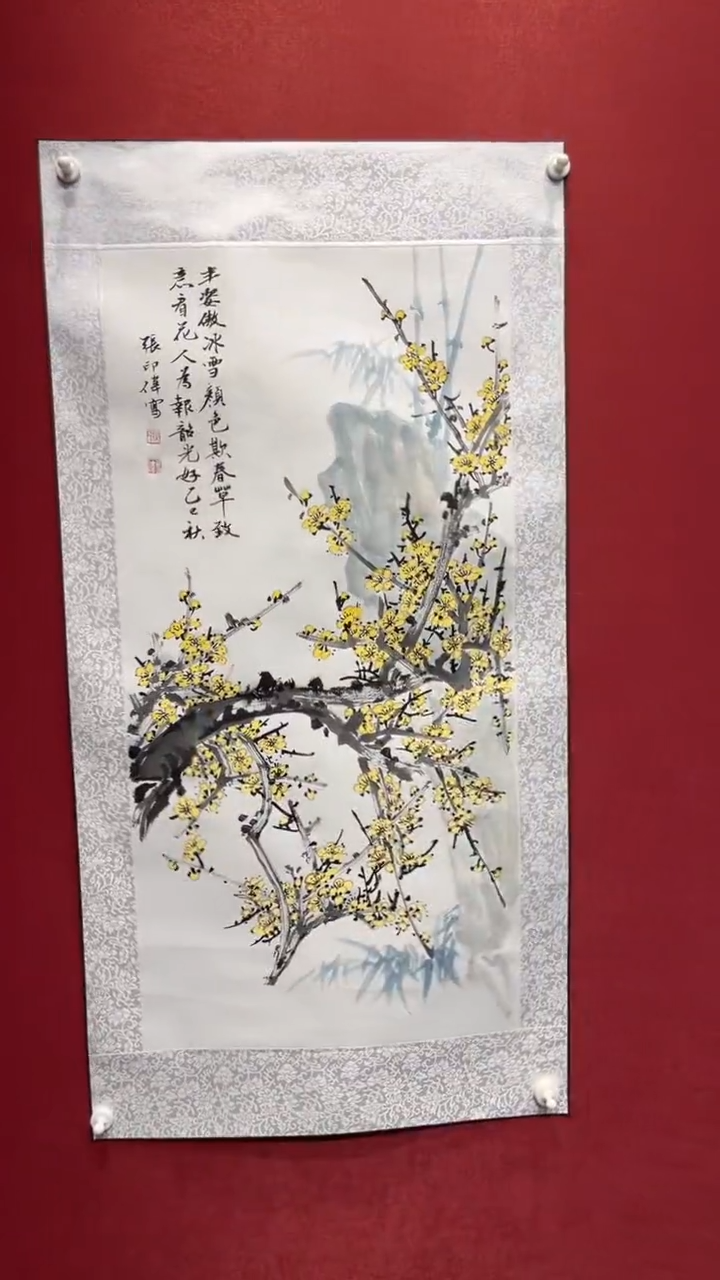 丰姿傲冰雪顏色欺春草致
意看花人為報韶光好乙巳秋
張印偉寫